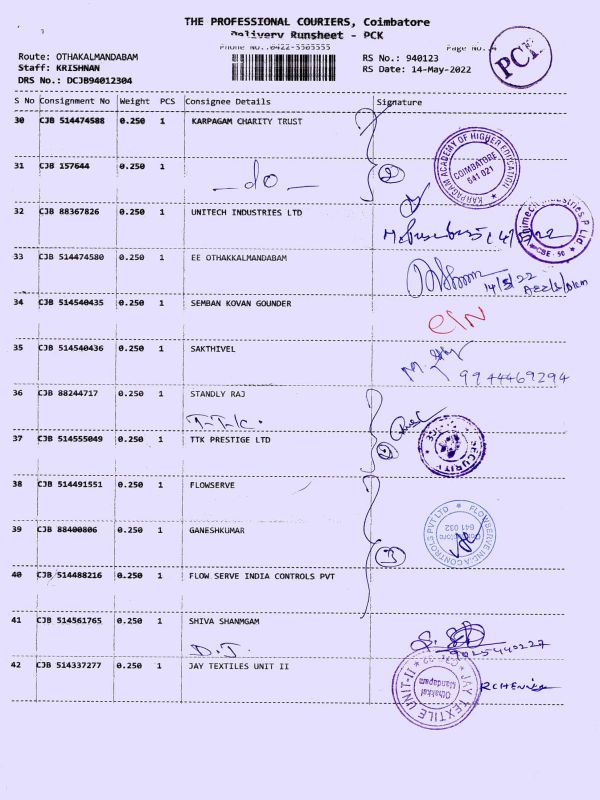 THE PROFESSIONAL COURIERS, Coimbatore
Delivery Runsheet - PCK
Phone No.:0422-3505555
Page No.:4
PCK
Route: OTHAKALMANDABAM
Staff: KRISHNAN
DRS No.: DCJB94012304
RS No.: 940123
RS Date: 14-May-2022
S No Consignment No Weight PCS Consignee Details Signature
30 CJB 514474588 0.250 1 KARPAGAM CHARITY TRUST
KARPAGAM ACADEMY OF HIGHER EDUCATION
COIMBATORE
641 021
31 CJB 157644 0.250 1
-do-
2
32 CJB 88367826 0.250 1 UNITECH INDUSTRIES LTD
CBE - 50
33 CJB 514474580 0.250 1 EE OTHAKKALMANDABAM
14/5/22
34 CJB 514540435 0.250 1 SEMBAN KOVAN GOUNDER
35 CJB 514540436 0.250 1 SAKTHIVEL
9944469294
36 CJB 88244717 0.250 1 STANDLY RAJ
T.T.K.
37 CJB 514555049 0.250 1 TTK PRESTIGE LTD
SECURITY
38 CJB 514491551 0.250 1 FLOWSERVE
FLOWSERVE INDIA CONTROLS PVT LTD
641 032
39 CJB 88400806 0.250 1 GANESHKUMAR
3
40 CJB 514488216 0.250 1 FLOW SERVE INDIA CONTROLS PVT
41 CJB 514561765 0.250 1 SHIVA SHANMGAM
9025440227
D.J.
42 CJB 514337277 0.250 1 JAY TEXTILES UNIT II
JAY TEXTILE UNIT-II
Othakkal
Mandapam